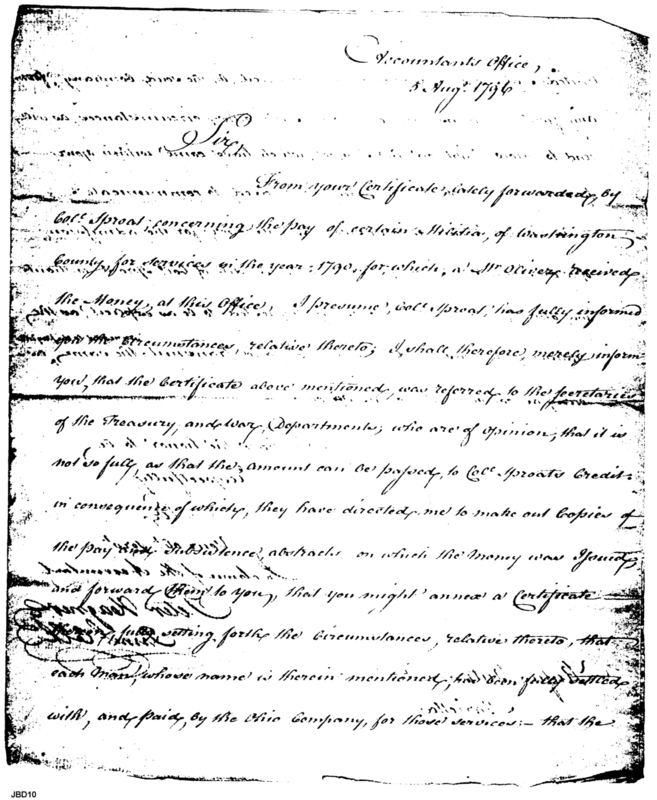 Accountants Office,
5 Augt. 1796
Sir,
From your Certificate, lately forwarded, by
Colo. Sproat, concerning the pay of certain Militia, of Washington
County, for services in the year, 1790, for which, a Mr. Oliver, received
the Money, at this Office, I presume, Colo. Sproat, has fully informed
you the Circumstances, relative thereto; I shall, therefore, merely inform
You, that the Certificate above mentioned, was referred to the Secretaries
of the Treasury, and War, Departments, who are of opinion, that it is
not so full, as that the amount can be passed, to Colo. Sproats Credit:
in consequence of which, they have directed me to make out Copies of
the pay and Subsistence abstracts on which the Money was Issued,
and forward them to You, that you might annex a Certificate
thereon, fully setting forth, the Circumstances, relative thereto, that
each Man, whose name is therein mentioned, has been fully settled
with, and paid, by the Ohio Company, for those services:— that the
JBD10